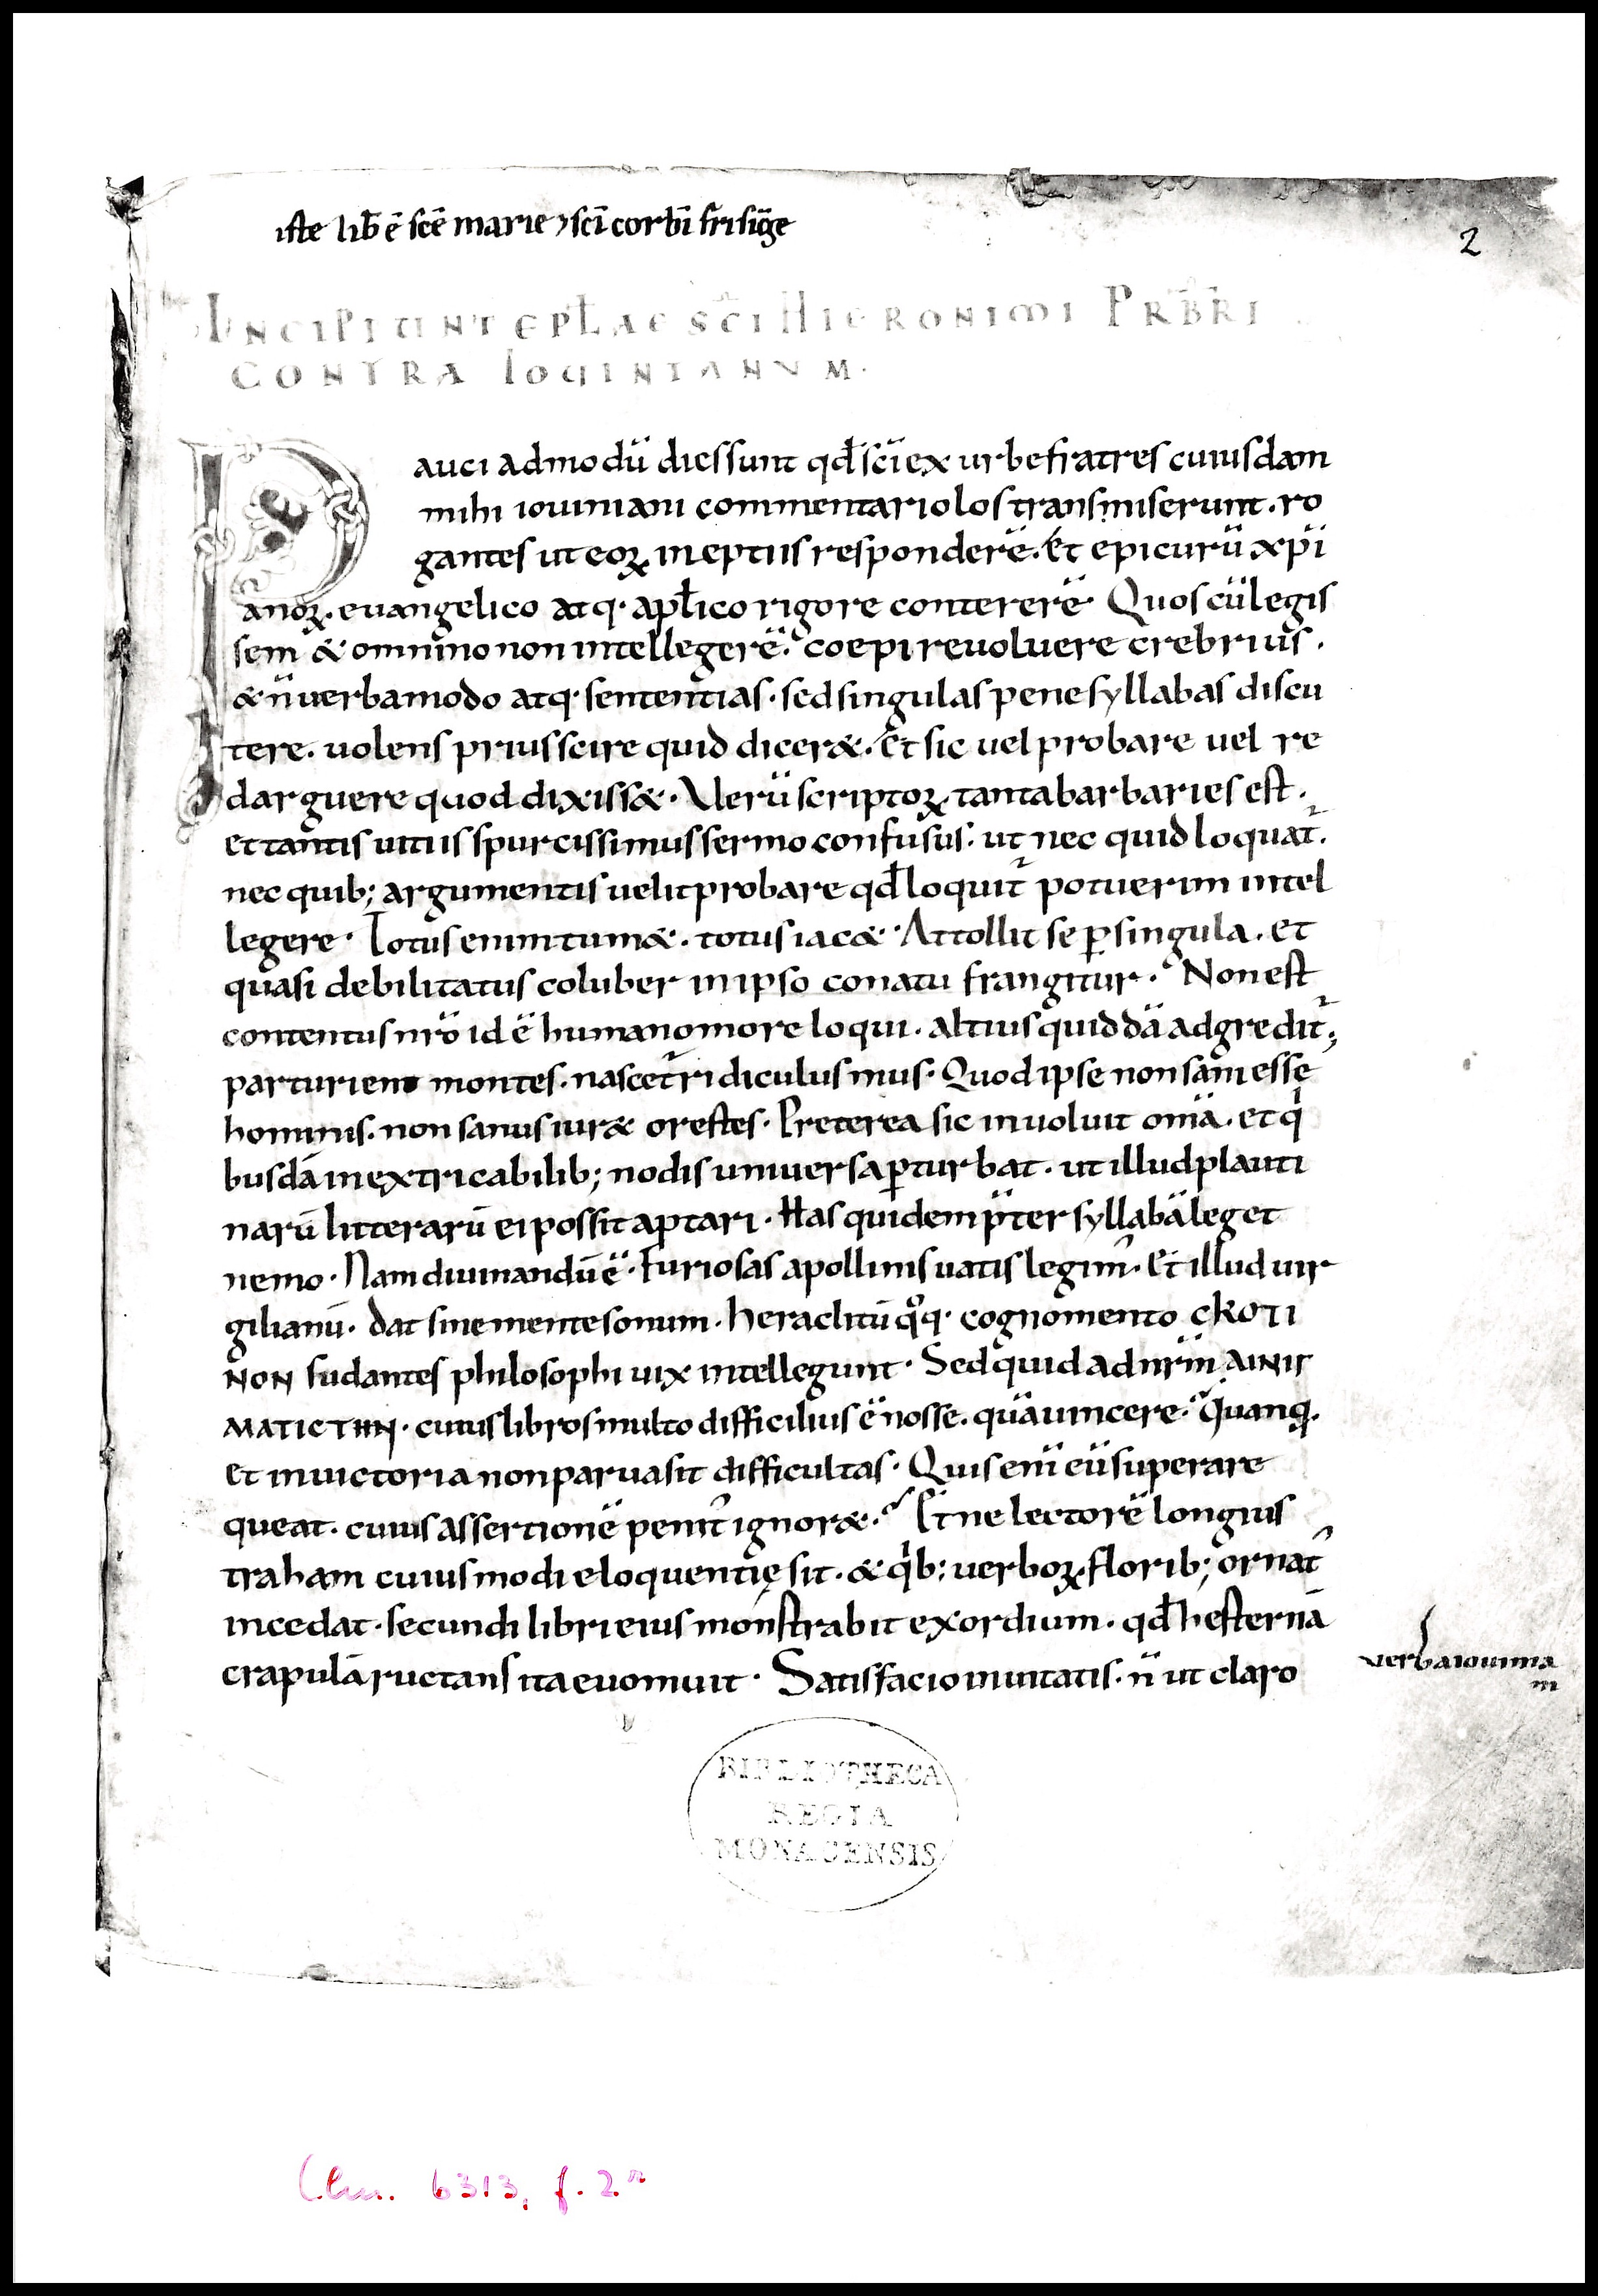 iste lib̄ ē scē marie ⁊ sc̄i corb̄i frisīge
2
INCIPIUNT EPL̄AE SC̄I HIERONIMI PRB̄RI
CONTRA IOUINIANUM.
Pauci admodū dies sunt qd̄ sc̄i ex urbe fratres cuiusdam
mihi iouiniani commentariolos transmiserunt. ro
gantes ut eoꝝ ineptiis responderē. et epicurū xp̄i
anoꝝ. euangelico atq· apl̄ico rigore contererē· Quos cū legis
sem̄ & omnino non intellegerē. coepi reuoluere crebrius.
& n̄ uerba modo atq· sententias. sed singulas pene syllabas discu
tere. uolens prius scire quid dicer&. et sic uel probare uel re
darguere quod dixiss&. Uerū scriptoꝝ tanta barbaries est.
et tantis uitiis spurcissimus sermo confusus. ut nec quid loquat̄.
nec quib; argumentis uelit probare qd̄ loquit̄ potuerim intel
legere· Totus enim tum&. totus iac& · Attollit se ꝑ singula. et
quasi debilitatus coluber in ipso conatu frangitur. Non est
contentus nr̄o id ē humano more loqui. altius quiddā adgredit̄;
parturient montes. nascet̄ ridiculus mus· Quod ipse non sani esse
hominis. non sanus iur& orestes. Preterea sic inuoluit om̄ia. et qi
busdā inextricabilib; nodis uniuersa ꝑturbat. ut illud plauti
narū litterarū ei possit aptari. Has quidem p̄ter syllabā leget
nemo. Nam diuinandū ē. furiosas apollinis uatis legim'. Et illud uir
gilianū. dat sine mente sonum. heraclitū qoq· cognomento CKOTI
NON sudantes philosophi uix intellegunt. Sed quid ad nr̄m AINIΓ
MATICTHN. cuius libros multo difficilius ē nosse. quā uincere. Quanq.
et in uictoria non parua sit difficultas. Quis eni̅ eū superare
queat. cuius assertionē penit' ignor&. Et ne lectorē longius
traham cuiusmodi eloquentię sit. & qib; uerboꝝ florib; ornat'
incedat. secundi libri eius monstrabit exordium. qd̄ hesternā
crapulā ructans ita euomuit. Satisfacio inuitatis. n̄ ut claro
uerba iouinia
ni
BIBLIOTHECA
REGIA
MONACENSIS
Clm. 6313, f. 2r